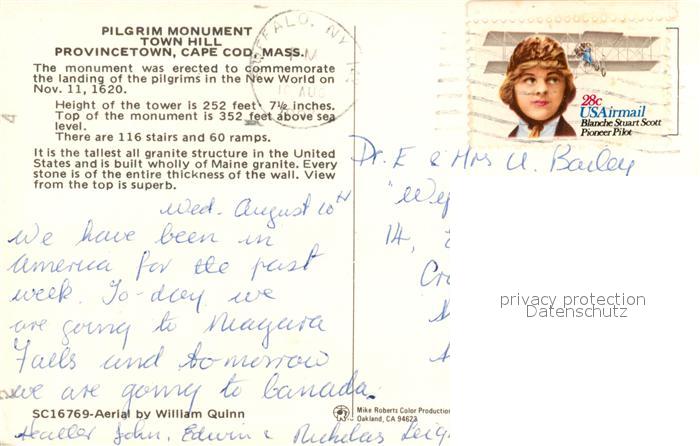 PILGRIM MONUMENT
TOWN HILL
PROVINCETOWN, CAPE COD, MASS.
The monument was erected to commemorate
the landing of the pilgrims in the New World on
Nov. 11, 1620.
Height of the tower is 252 feet 7½ inches.
Top of the monument is 352 feet above sea
level.
There are 116 stairs and 60 ramps.
It is the tallest all granite structure in the United
States and is built wholly of Maine granite. Every
stone is of the entire thickness of the wall. View
from the top is superb.
Wed. August 10th
We have been in
America for the past
week. To-day we
are going to Niagara
Falls and tomorrow
we are going to Canada.
Heather John, Edwin & Nicholas Leig
SC16769-Aerial by William Quinn
Mike Roberts Color Production
Oakland, CA 94623
BUFFALO, NY
28c
USAirmail
Blanche Stuart Scott
Pioneer Pilot
Dr. E & Mrs U. Bailey
14,
privacy protection
Datenschutz